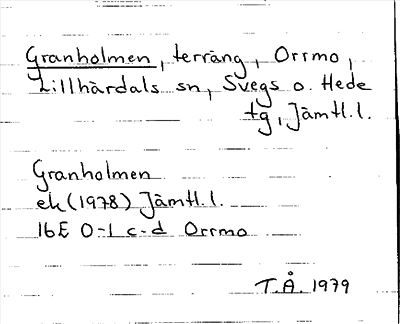 Granholmen, terräng, Orrmo,
Lillhärdals sn, Svegs o. Hede
tg, Jämtl.l.
Granholmen
ek (1978) Jämtl.l.
16E 0-1 c-d Orrmo
T.Å. 1979